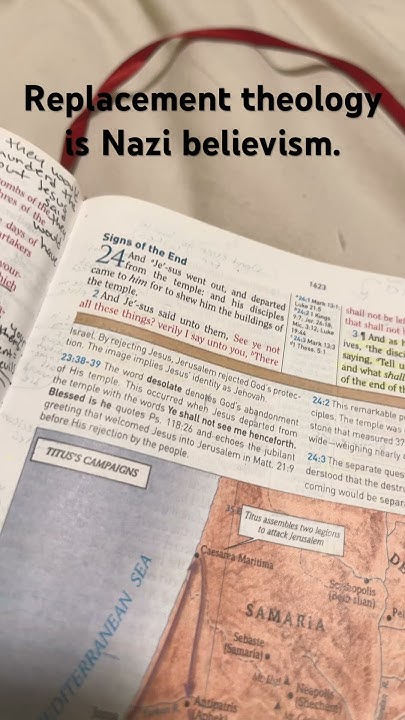 Replacement theology
is Nazi believism.
they
but
days of
artakers
your
which
Signs of the End
1623
24 And *Je'-sus went out, and departed
from the temple: and his disciples
came to him for to shew him the buildings of
the temple.
2 And Je'-sus said unto them, See ye not
all these things? verily I say unto you, *There
*24:1 Mark 13:1;
Luke 21:5
*24:2 1 Kings
9:7; Jer. 26:18;
Mic. 3:12; Luke
19:44
*24:3 Mark 13:3
1 Thess. 5:1
shall not be
that shall not
3 ¶ And as h
ives, *the disci
saying, *Tell u
and what shall
of the end of th
Israel. By rejecting Jesus, Jerusalem rejected God's protec-
tion. The image implies Jesus' identity as Jehovah.
23:38-39 The word desolate denotes God's abandonment
of His temple. This occurred when Jesus departed from
the temple with the words Ye shall not see me henceforth.
Blessed is he quotes Ps. 118:26 and echoes the jubilant
greeting that welcomed Jesus into Jerusalem in Matt. 21:9
before His rejection by the people.
24:2 This remarkable p
ciples. The temple was
stone that measured 37
wide—weighing nearly
24:3 The separate ques
derstood that the destru
coming would be separ
TITUS'S CAMPAIGNS
Titus assembles two legions
to attack Jerusalem
Caesarea Maritima
MEDITERRANEAN SEA
SAMARIA
Scythopolis
(Beth-shan)
Pel
Sebaste
(Samaria)
Neapolis
(Shechem)
Antipatris